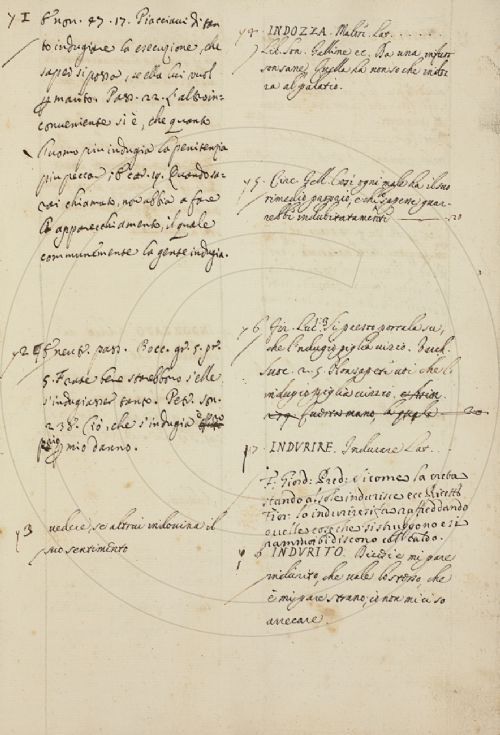 y 1 nov. 47. 17. Piacciavi di tan
to indugiare la esecuzione, che
saper si possa, se ella lui vuol
p marito. Pass. 22. L'altro in:
conveniente si è, che quanto
l'uomo più indugia la penitenzia
più pecca. 19. Quando sa:
rai chiamato, non abbia a fare
lo apparecchiamento, il quale
comunemente la gente indugia.
y 2 neut. pass. Bocc. g. 5. pr.
5. Frate bene starebbono, s'elle
s'indugiasser tanto. Petr. son.
238. Ciò, che s'indugia è
p mio danno.
y 3 vedere, se altrui indovina il
suo sentimento
y 4 INDOZZA. Malore. Lat. . . . . . .
Lib. Son. Gelline ec. Da una
non sane, Quella ha non so che indoz
za al palatico.
y 5. Circ. Gell. Così ogni male ha il suo
rimedio proprio, e chi lo sapesse, gua:
rebbe indubitatamente 20
y 6. Fir. Luc. Si presto portala su,
che l'indugio piglia vizio. Buck.
2. 5. Non sapete voi che l'
indugio piglia vizio.
20
y 7. INDURIRE. Indurare Lat. . .
F. Giord. Pred: Sicome la creta
stando al sole indurisce ec e Ricett:
Fior. lo indurire si fa raffreddando
quelle cose che si struggono e si
rammorbidiscono col caldo.
y INDURITO. Dicesi e mi pare
indurito, che vale lo stesso, che
è mi pare strano, io non mi ci so
arrecare.